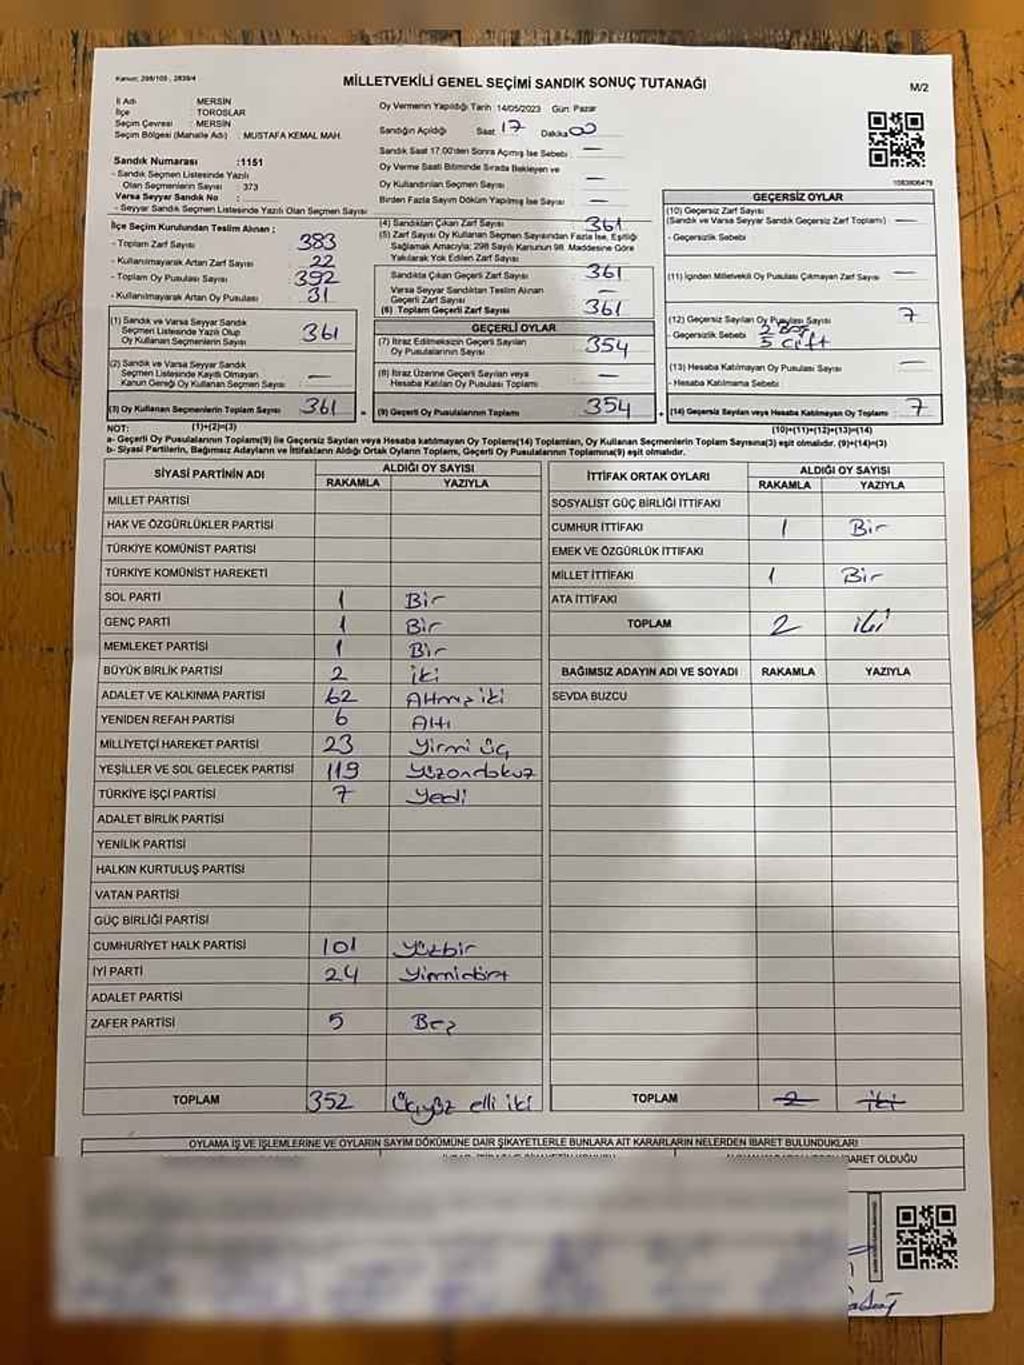 Kanun: 298/105, 2839/4
MİLLETVEKİLİ GENEL SEÇİMİ SANDIK SONUÇ TUTANAĞI
M/2
İl Adı MERSİN
İlçe TOROSLAR
Seçim Çevresi : MERSİN
Seçim Bölgesi (Mahalle Adı) : MUSTAFA KEMAL MAH.
Sandık Numarası :1151
- Sandık Seçmen Listesinde Yazılı
Olan Seçmenlerin Sayısı : 373
Varsa Seyyar Sandık No :
- Seyyar Sandık Seçmen Listesinde Yazılı Olan Seçmen Sayısı
Oy Vermenin Yapıldığı Tarih :14/05/2023 Gün: Pazar
Sandığın Açıldığı Saat 17 Dakika 00
Sandık Saat 17.00'den Sonra Açılmış İse Sebebi : —
Oy Verme Saati Bitiminde Sırada Bekleyen ve
Oy Kullandırılan Seçmen Sayısı —
Birden Fazla Sayım Döküm Yapılmış İse Sayısı —
İlçe Seçim Kurulundan Teslim Alınan ;
- Toplam Zarf Sayısı : 383
- Kullanılmayarak Artan Zarf Sayısı : 22
- Toplam Oy Pusulası Sayısı : 392
- Kullanılmayarak Artan Oy Pusulası : 31
(1) Sandık ve Varsa Seyyar Sandık
Seçmen Listesinde Yazılı Olup
Oy Kullanan Seçmenlerin Sayısı : 361
(2) Sandık ve Varsa Seyyar Sandık
Seçmen Listesinde Kayıtlı Olmayan
Kanun Gereği Oy Kullanan Seçmen Sayısı : —
(3) Oy Kullanan Seçmenlerin Toplam Sayısı 361
(4) Sandıktan Çıkan Zarf Sayısı 361
(5) Zarf Sayısı Oy Kullanan Seçmen Sayısından Fazla İse, Eşitliği
Sağlamak Amacıyla; 298 Sayılı Kanunun 98. Maddesine Göre
Yakılarak Yok Edilen Zarf Sayısı
Sandıkta Çıkan Geçerli Zarf Sayısı 361
Varsa Seyyar Sandıktan Teslim Alınan
Geçerli Zarf Sayısı —
(6) Toplam Geçerli Zarf Sayısı 361
GEÇERLİ OYLAR
(7) İtiraz Edilmeksizin Geçerli Sayılan
Oy Pusulalarının Sayısı 354
(8) İtiraz Üzerine Geçerli Sayılan veya
Hesaba Katılan Oy Pusulası Toplamı —
(9) Geçerli Oy Pusulalarının Toplamı 354
GEÇERSİZ OYLAR
(10) Geçersiz Zarf Sayısı
(Sandık ve Varsa Seyyar Sandık Geçersiz Zarf Toplamı) : —
- Geçersizlik Sebebi
(11) İçinden Milletvekili Oy Pusulası Çıkmayan Zarf Sayısı : —
(12) Geçersiz Sayılan Oy Pusulası Sayısı 7
- Geçersizlik Sebebi : 2 Boş
5 Çift
(13) Hesaba Katılmayan Oy Pusulası Sayısı : —
- Hesaba Katılmama Sebebi
(14) Geçersiz Sayılan veya Hesaba Katılmayan Oy Toplamı : 7
NOT: (1)+(2)=(3) (10)+(11)+(12)+(13)=(14)
a- Geçerli Oy Pusulalarının Toplamı(9) ile Geçersiz Sayılan veya Hesaba katılmayan Oy Toplamı(14) Toplamları, Oy Kullanan Seçmenlerin Toplam Sayısına(3) eşit olmalıdır. (9)+(14)=(3)
b- Siyasi Partilerin, Bağımsız Adayların ve İttifakların Aldığı Ortak Oyların Toplamı, Geçerli Oy Pusulalarının Toplamına(9) eşit olmalıdır.
SİYASİ PARTİNİN ADI ALDIĞI OY SAYISI
RAKAMLA YAZIYLA
MİLLET PARTİSİ
HAK VE ÖZGÜRLÜKLER PARTİSİ
TÜRKİYE KOMÜNİST PARTİSİ
TÜRKİYE KOMÜNİST HAREKETİ
SOL PARTİ 1 Bir
GENÇ PARTİ 1 Bir
MEMLEKET PARTİSİ 1 Bir
BÜYÜK BİRLİK PARTİSİ 2 iki
ADALET VE KALKINMA PARTİSİ 62 Altmış iki
YENİDEN REFAH PARTİSİ 6 Altı
MİLLİYETÇİ HAREKET PARTİSİ 23 Yirmi üç
YEŞİLLER VE SOL GELECEK PARTİSİ 119 Yüzondokuz
TÜRKİYE İŞÇİ PARTİSİ 7 Yedi
ADALET BİRLİK PARTİSİ
YENİLİK PARTİSİ
HALKIN KURTULUŞ PARTİSİ
VATAN PARTİSİ
GÜÇ BİRLİĞİ PARTİSİ
CUMHURİYET HALK PARTİSİ 101 Yüzbir
İYİ PARTİ 24 Yirmidört
ADALET PARTİSİ
ZAFER PARTİSİ 5 Beş
TOPLAM 352 Üçyüz elli iki
İTTİFAK ORTAK OYLARI ALDIĞI OY SAYISI
RAKAMLA YAZIYLA
SOSYALİST GÜÇ BİRLİĞİ İTTİFAKI
CUMHUR İTTİFAKI 1 Bir
EMEK VE ÖZGÜRLÜK İTTİFAKI
MİLLET İTTİFAKI 1 Bir
ATA İTTİFAKI
TOPLAM 2 iki
BAĞIMSIZ ADAYIN ADI VE SOYADI RAKAMLA YAZIYLA
SEVDA BUZCU
TOPLAM 2 iki
OYLAMA İŞ VE İŞLEMLERİNE VE OYLARIN SAYIM DÖKÜMÜNE DAİR ŞİKAYETLERLE BUNLARA AİT KARARLARIN NELERDEN İBARET BULUNDUKLARI
İBARET OLDUĞU